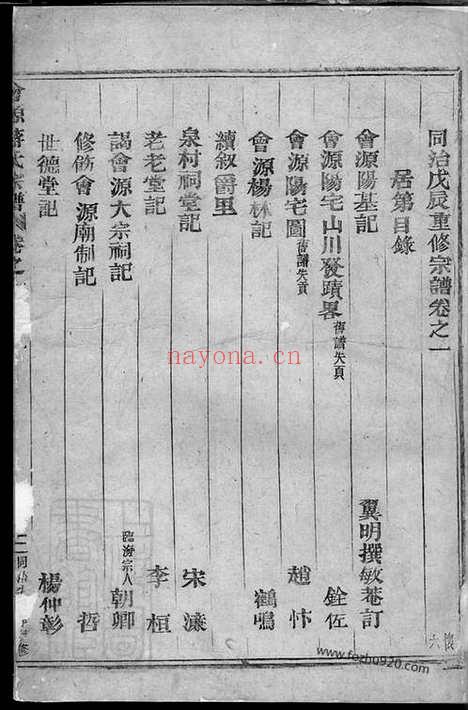 同治戊辰重修宗譜卷之一
居第目錄
會源陽基記 翼明撰敏菴訂
會源陽宅山川發蹟畧 舊譜失頁 銓佐
會源陽宅圖 舊譜失頁 趙忭
會源楊林記 鶴鳴
續叙爵里
泉村祠堂記 宋濂
老老堂記 李桓
謁會源大宗祠記 臨海宗人 朝卿
修飭會源廟制記 哲
世德堂記 楊仲彰
nayona.cn
www.fezho920.com